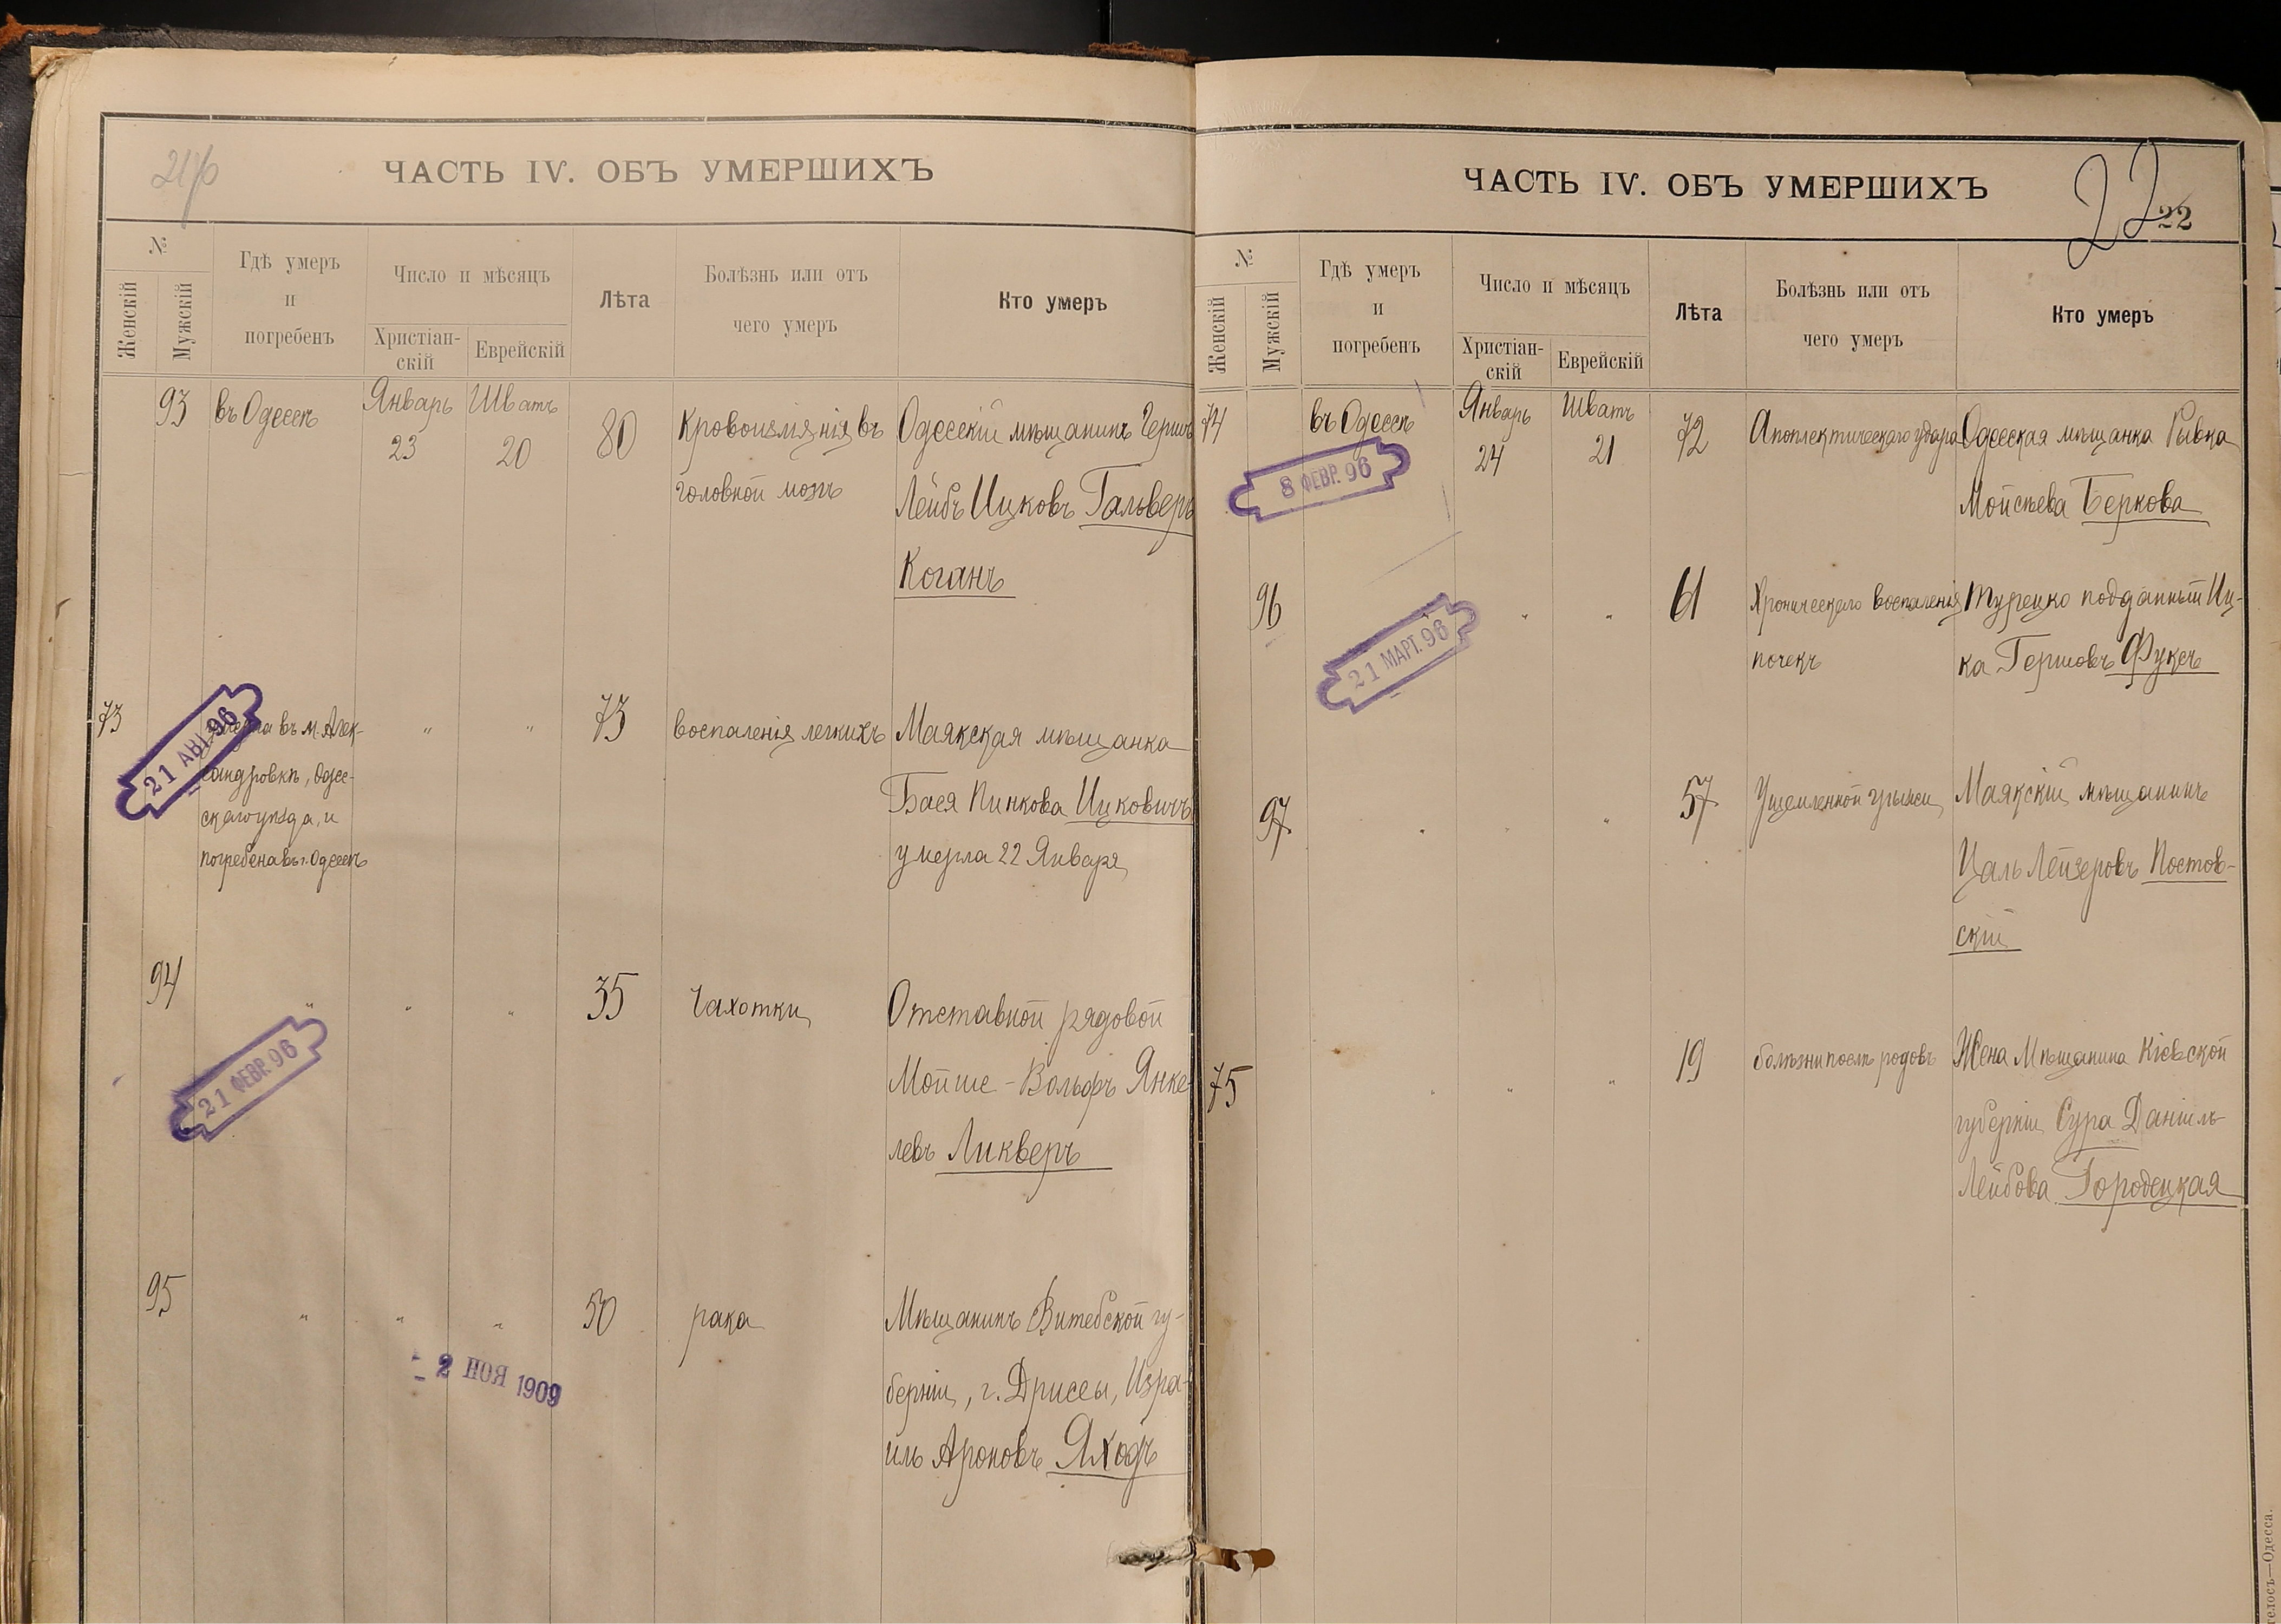 21/об
ЧАСТЬ IV. ОБЪ УМЕРШИХЪ
№
Женскій
Мужскій
Гдѣ умеръ
и
погребенъ
Число и мѣсяцъ
Христіан-
скій
Еврейскій
Лѣта
Болѣзнь или отъ
чего умеръ
Кто умеръ
93 въ Одессѣ Январь 23 Шватъ 20 80 Кровоизліянія въ
головной мозгъ
Одесскій мѣщанинъ Гершъ
Лейбъ Ицковъ Гальперъ
Коганъ
73 въ м. Алек-
сандровкѣ, Одес-
скаго уѣзда, и
погребена въ г. Одессѣ
21 АВГ. 96
" " 73 воспаленія легкихъ
Маякская мѣщанка
Бася Пинкова Ицковичъ
умерла 22 Января
94 " " " 35 Чахотки
21 ФЕВР. 96
Отставной рядовой
Мойше-Вольфъ Янке-
левъ Ликверъ
95 " " " 50 рака
- 2 НОЯ 1909
Мѣщанинъ Витебской гу-
берніи, г. Дриссы, Изра-
иль Ароновъ
ЧАСТЬ IV. ОБЪ УМЕРШИХЪ
22
22
№
Женскій
Мужскій
Гдѣ умеръ
и
погребенъ
Число и мѣсяцъ
Христіан-
скій
Еврейскій
Лѣта
Болѣзнь или отъ
чего умеръ
Кто умеръ
74 въ Одессѣ Январь 24 Шватъ 21 72 Апоплектическаго удара
8 ФЕВР. 96
Одесская мѣщанка Рывка
Мойсѣева Беркова
96 " " 61 Хроническаго воспаленія
почекъ
21 МАРТ. 96
Турецко подданный Иц-
ка Гершовъ Фуксъ
97 " " " 57 Ущемленной грыжи
Маякскій мѣщанинъ
Цаль Лейзеровъ Постов-
скій
75 " " " 19 болѣзни послѣ родовъ
Жена Мѣщанина Кіевской
губерніи Сура Даніиль-
Лейбова Городецкая
телосъ—Одесса.